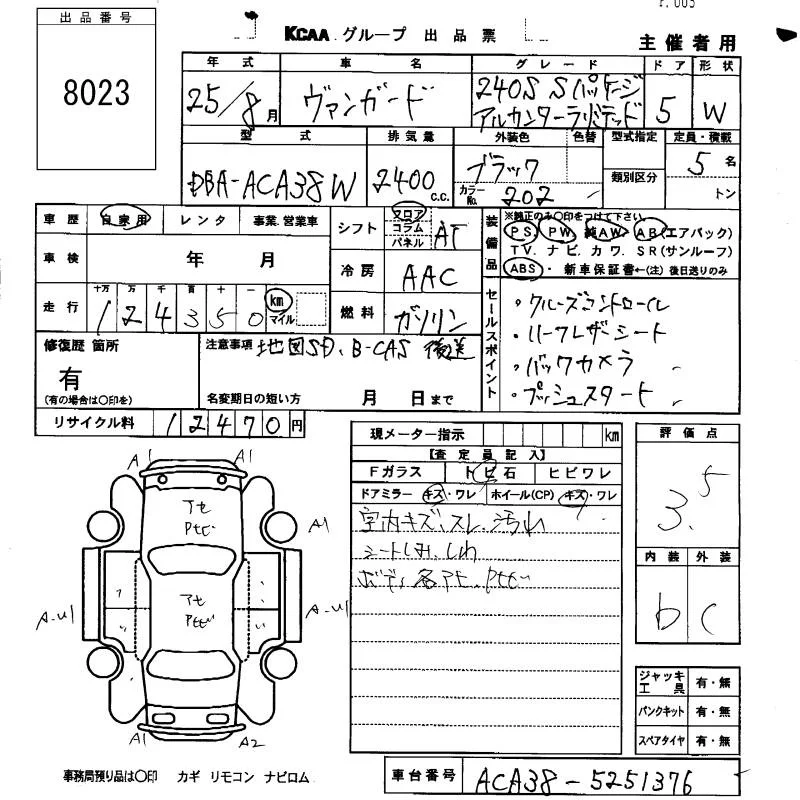 r.005
出品番号
8023
KCAA グループ 出品票
主催者用
年式 車名 グレード ドア 形状
25/8月 ヴァンガード 240S Sパッケージ
アルカンターラリミテッド 5 W
型式 排気量 外装色 色替 型式指定 定員・積載
DBA-ACA38W 2400 c.c. ブラック 類別区分 5名
カラーNo. 202 トン
車歴 自家用 レンタ 事業.営業車
シフト フロア コラム パネル AT
装備品 ※純正のみ〇印をつけて下さい
PS PW 純AW AB(エアバック)
TV. ナビ. カワ. SR(サンルーフ)
ABS・新車保証書←(注)後日送りのみ
車検 年 月
冷房 AAC
走行 十万 万 千 百 十 一
124350 km マイル
燃料 ガソリン
セールスポイント
・クルーズコントロール
・ハーフレザーシート
・バックカメラ
・プッシュスタート
修復歴 箇所
有
(有の場合は〇印を)
注意事項 地図SD、B-CAS 後送
名変期日の短い方 月 日まで
リサイクル料 12470円
現メーター指示 km
【査定員記入】
Fガラス トビ石 ヒビワレ
ドアミラー キズ・ワレ ホイール(CP) キズ・ワレ
室内キズ、スレ、汚れ
シートしみ、しわ
ボディ各アセ、Ptビ
評価点
3.5
内装 外装
b C
ジャッキ工具 有・無
パンクキット 有・無
スペアタイヤ 有・無
A1 A1
アセ
Ptビ
A1
アセ
Ptビ
A-U1 A-U1
A1 A2
事務局預り品は〇印 カギ リモコン ナビロム
車台番号 ACA38-5251376